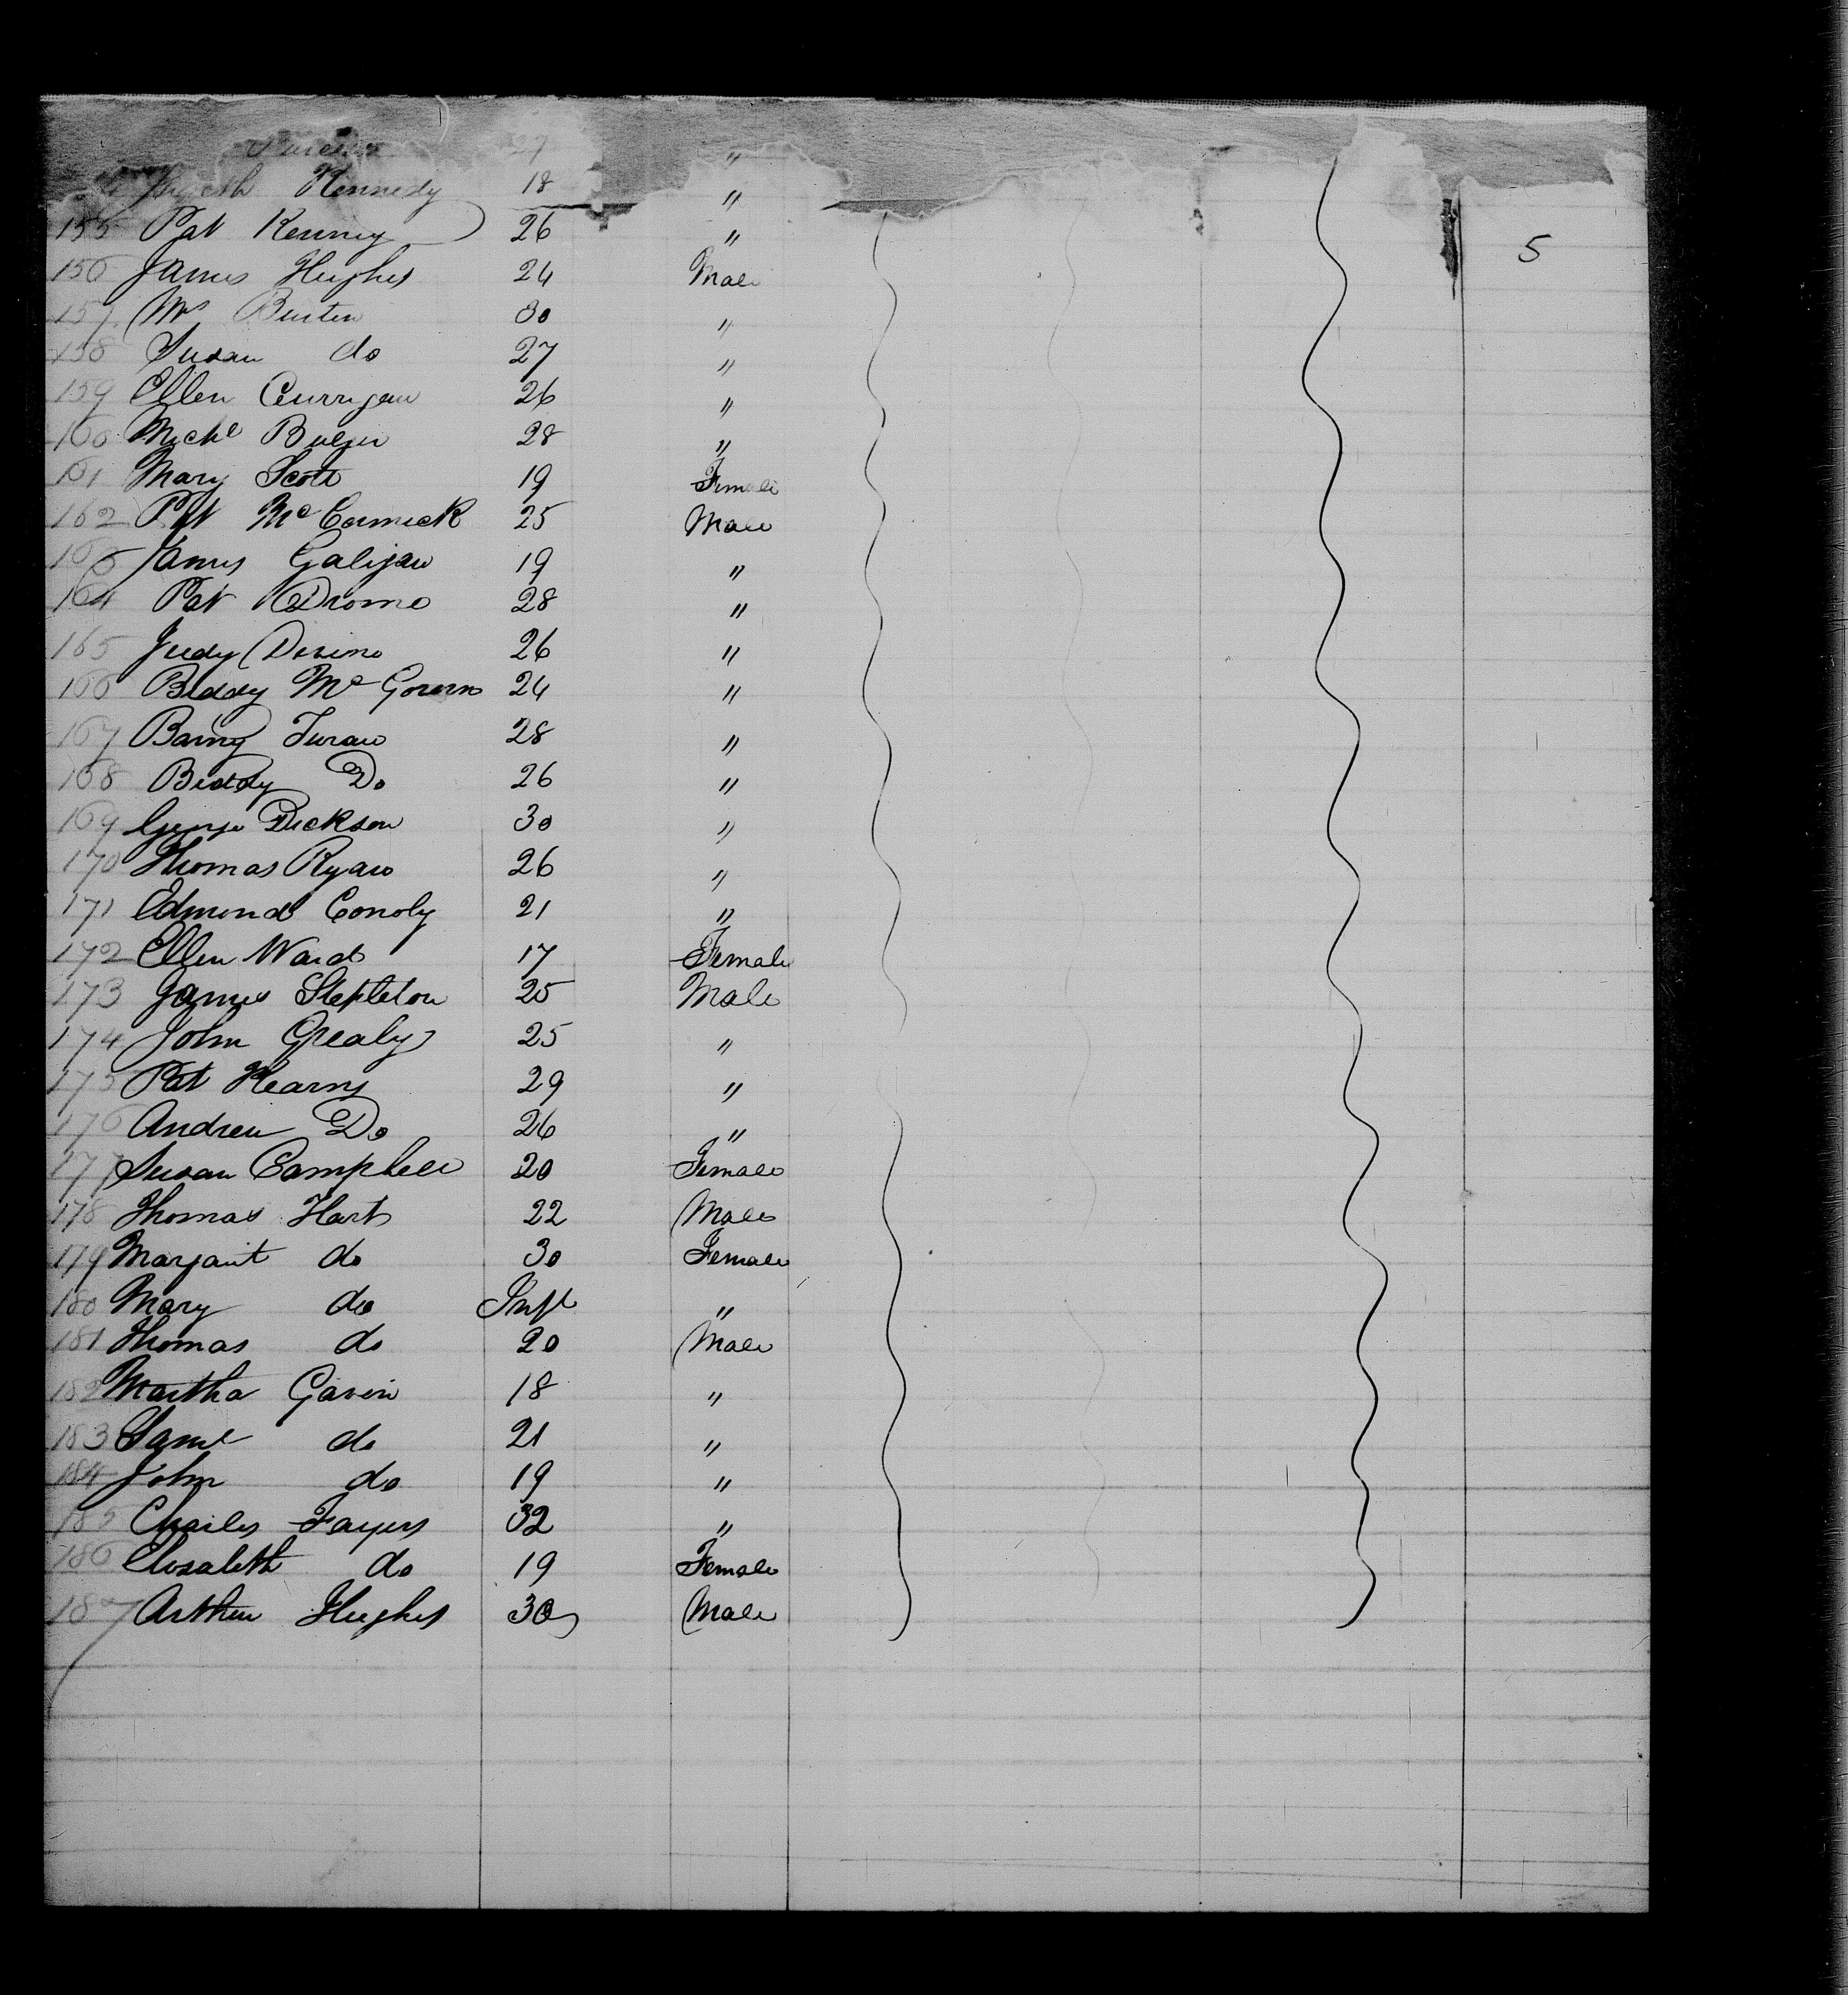 27 "
Kennedy 18 "
155 Pat Kenney 26 "
5
156 James Hughes 24 Male
157 Burten 30 "
158 Susan do 27 "
159 Ellen Currigan 26 "
160 Michl Bulger 28 "
161 Mary Scott 19 Female
162 Pat McCormick 25 Male
163 James Galigan 19 "
164 Pat 28 "
165 Judy 26 "
166 Biddy McGovern 24 "
167 Barny 28 "
168 Biddy Do 26 "
169 George Dickson 30 "
170 Thomas Ryan 26 "
171 Edmond Conoly 21 "
172 Ellen Ward 17 Female
173 James Stepleton 25 Male
174 John Grealy 25 "
175 Pat Kearns 29 "
176 Andrew Do 26 "
177 Susan Campbell 20 Female
178 Thomas Hart 22 Male
179 Margarit do 30 Female
180 Mary do Inft "
181 Thomas do 20 Male
182 Martha Gavin 18 "
183 Saml do 21 "
184 John do 19 "
185 Charles Fayers 32 "
186 Elisabeth do 19 Female
187 Arthur Hughes 30 Male